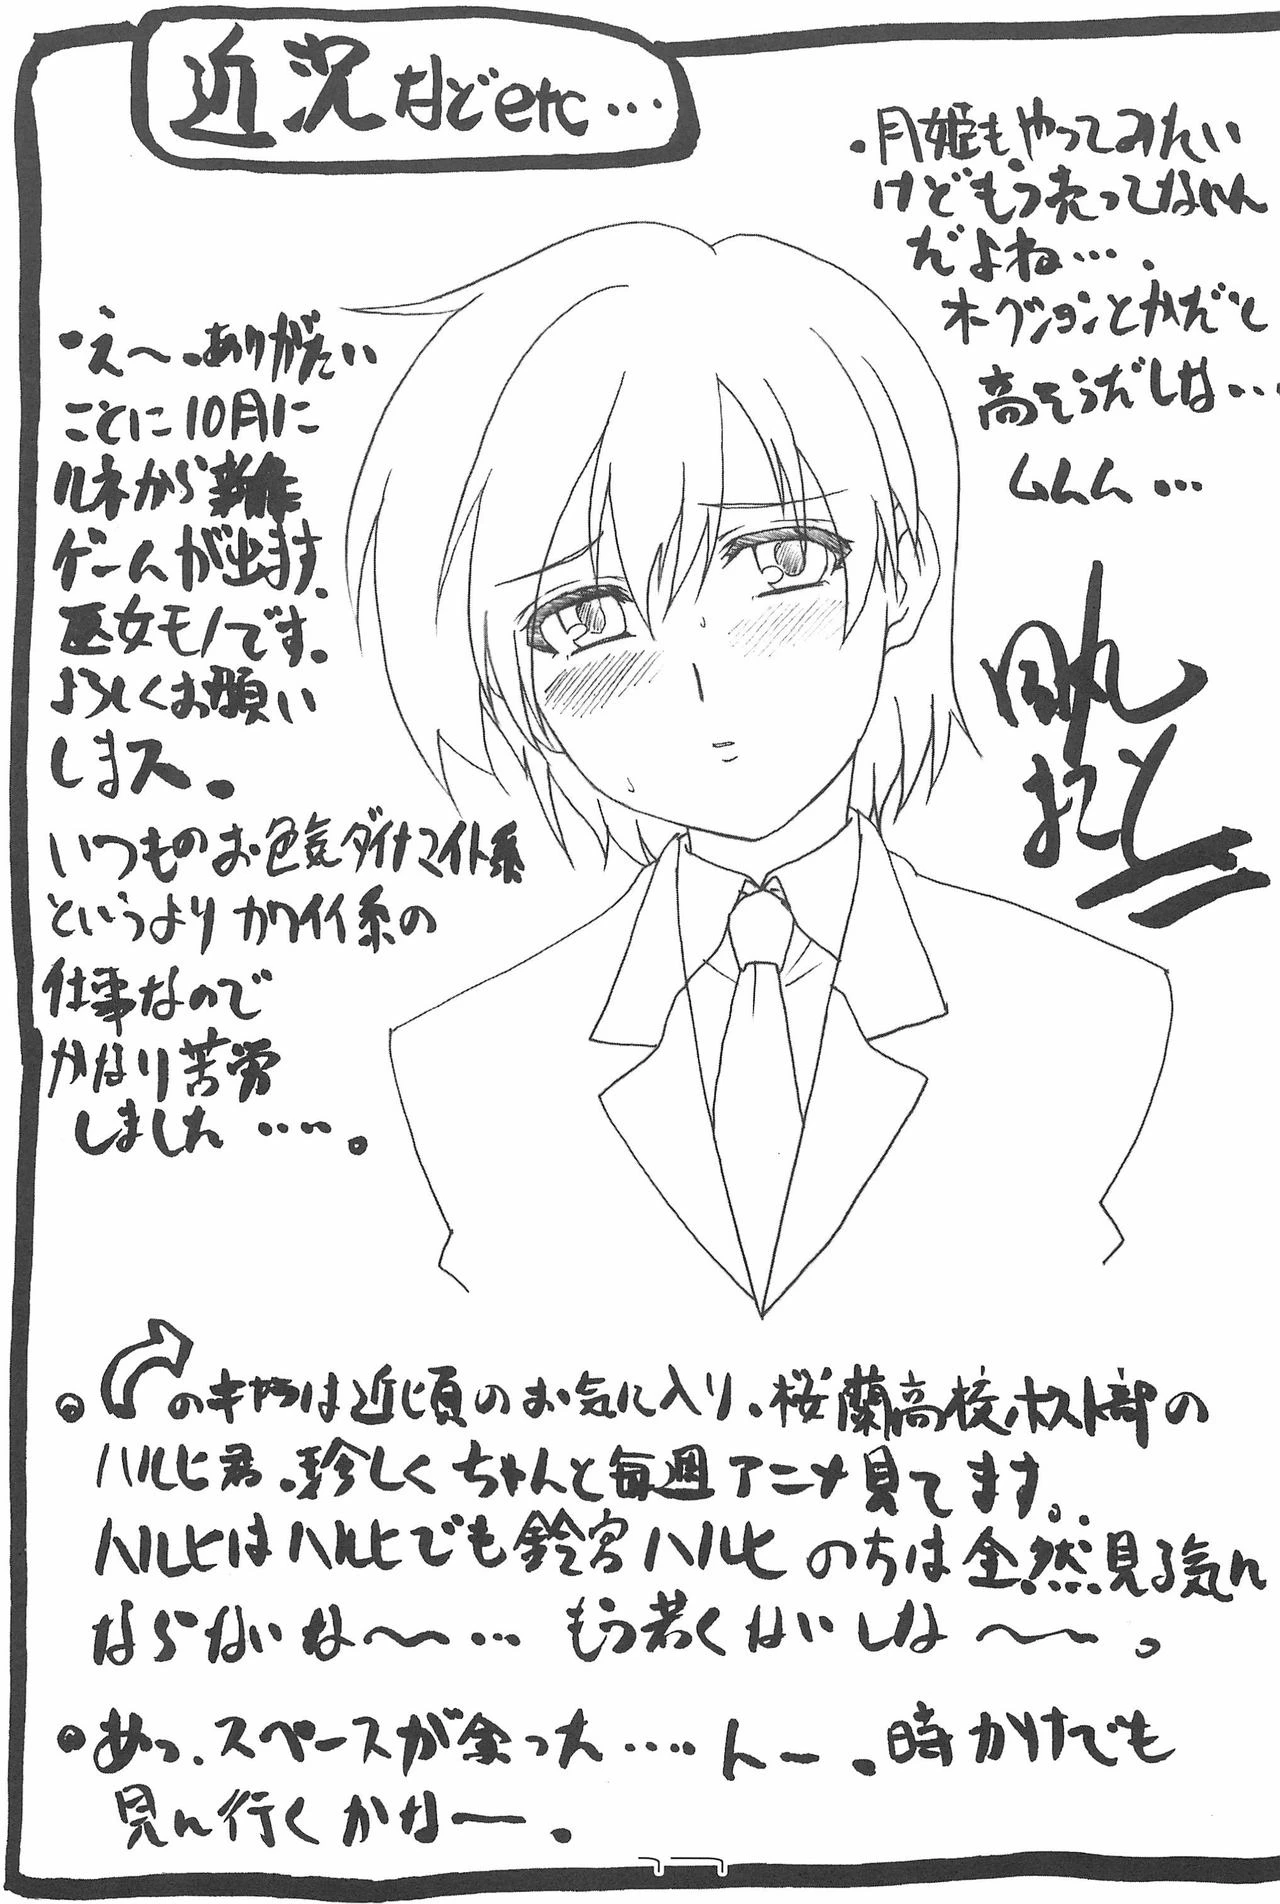 近況などetc…
・え〜、ありがたい
ことに10月に
ルネから新作
ゲームが出ます。
巫女モノです。
よろしくお願い
しまス。
いつものお色気ダイナマイト系
というよりカワイイ系の
仕事なので
かなり苦労
しました‥‥。
・月姫もやってみたい
けどもう売ってないん
だよね…。
オークションとかだと
高そうだしな…
ムムム…
まこと
のキャラは近頃のお気に入り、桜蘭高校ホスト部の
ハルヒ君。珍しくちゃんと毎週アニメ見てます。
ハルヒはハルヒでも鈴宮ハルヒのちは全然見る気に
ならないな〜〜… もう若くはいしな〜〜。
あっ、スペースが余った‥‥ んー。時かけでも
見に行くかな〜。